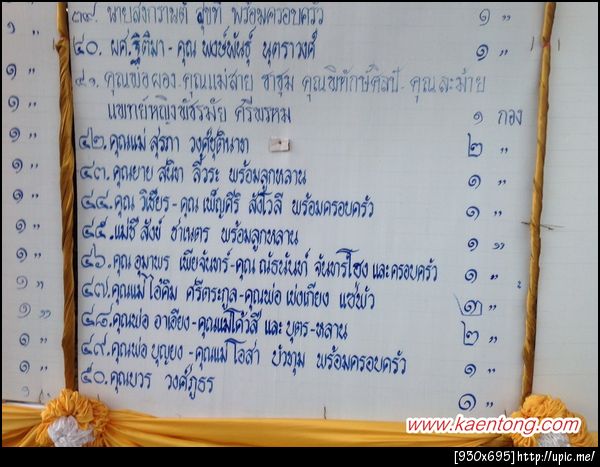 ๓๙. นายสงกรานต์ สุขที พร้อมครอบครัว ๑ "
๔๐. ผศ.ฐิติมา - คุณ พงษ์พันธุ์ นุตราวงศ์ ๑ "
๔๑. คุณพ่อผอง - คุณแม่สาย ชาชุม คุณพิทักษ์ศิลป์ - คุณละม้าย
แพทย์หญิงพัชรมัย ศรีพรหม ๑ กอง
๔๒. คุณแม่ สุรภา วงศ์ชุตินาท ๒ "
๔๓. คุณยาย สนิท ลี้วระ พร้อมลูกหลาน ๑ "
๔๔. คุณ วิเชียร - คุณ เพ็ญศิริ สังโวลี พร้อมครอบครัว ๑ "
๔๕. แม่ชี สังข์ ชาเนตร พร้อมลูกหลาน ๑ "
๔๖. คุณ อุมาพร เพียจันทร์ - คุณ ณัธนันท์ จันทร และครอบครัว ๑ "
๔๗. คุณแม่ ศรีตระกูล - คุณพ่อ เพ่งเกียง แซ่พัว ๓ "
๔๘. คุณพ่อ อาเฮียง - คุณแม่โค้วสี และ บุตร-หลาน ๒ "
๔๙. คุณพ่อ บุญยง - คุณแม่ โอสา บัวชุม พร้อมครอบครัว ๑ "
๕๐. คุณบวร วงศ์ภูธร ๑ "
www.kaentong.com
[930x695]http://upic.me/